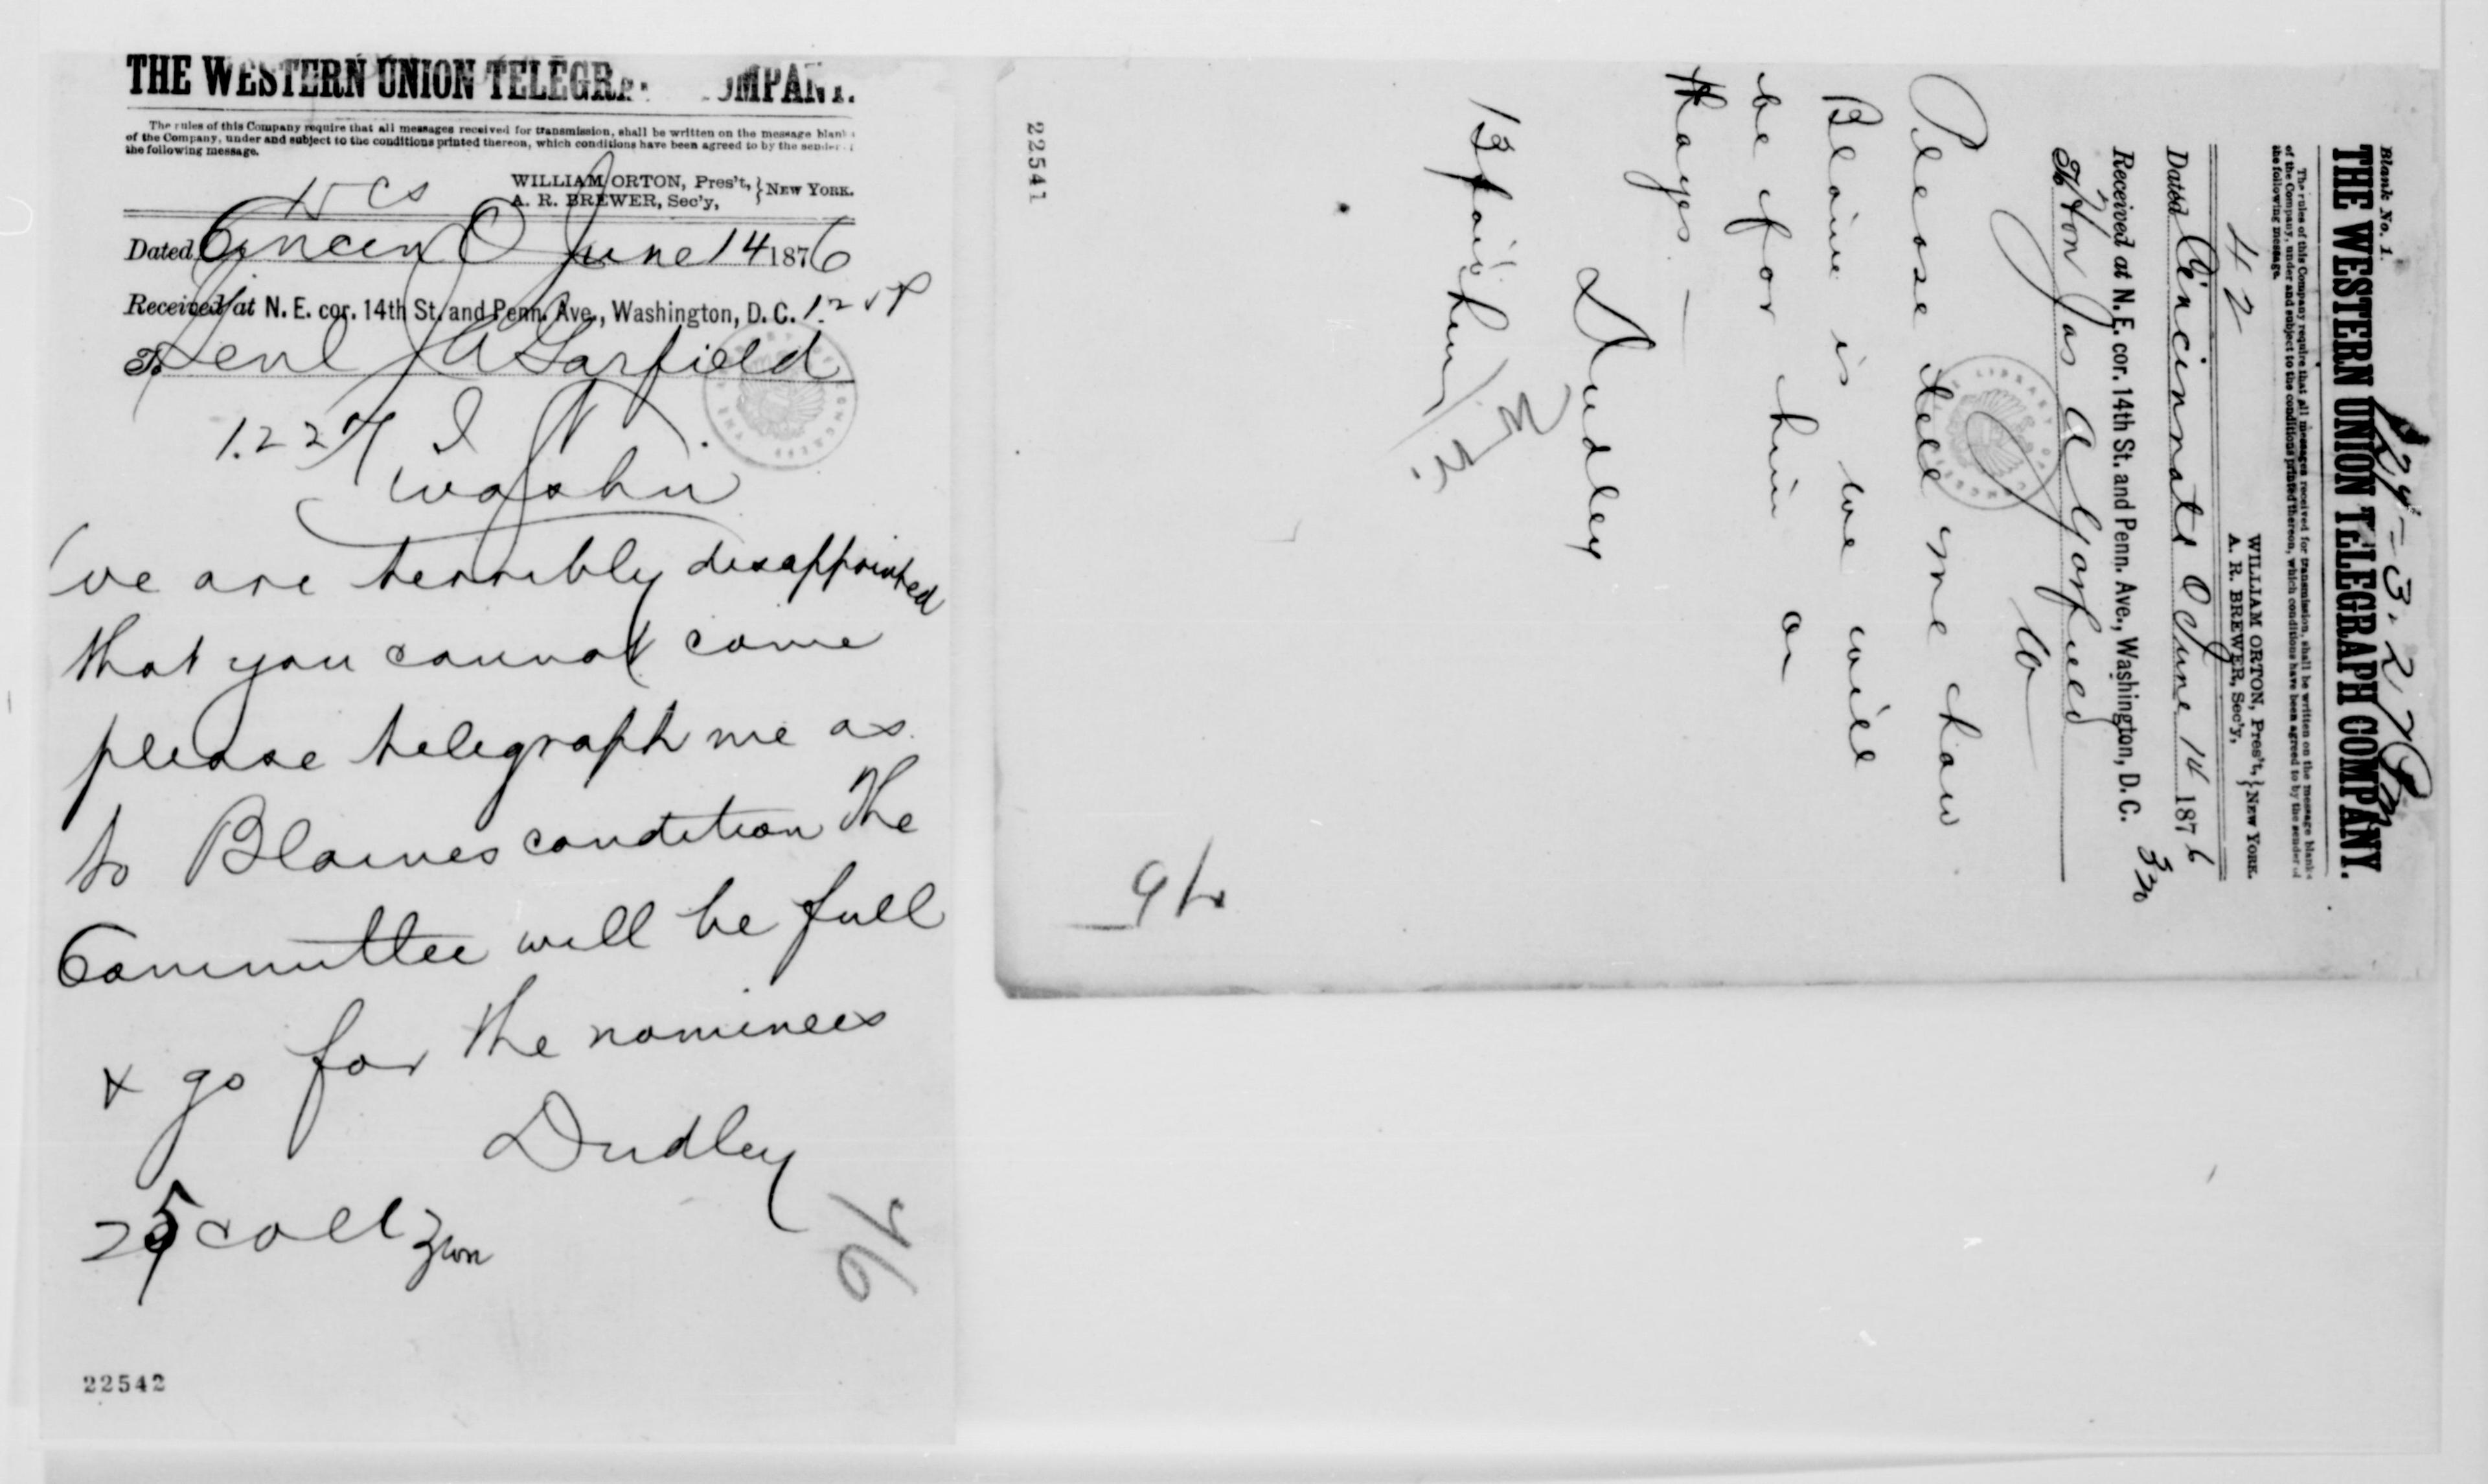 THE WESTERN UNION TELEGRA OMPANY.
The rules of this Company require that all messages received for transmission, shall be written on the message blanks
of the Company, under and subject to the conditions printed thereon, which conditions have been agreed to by the sender
the following message.
WILLIAM ORTON, Pres't, } NEW YORK.
A. R. BREWER, Sec'y,
15 Cs
Dated Cincin O June 14 1876
Received at N. E. cor. 14th St. and Penn. Ave., Washington, D. C.
To Genl J A Garfield
1227 I N
Washn
we are terribly disappointed
that you cannot come
please telegraph me as
to Blaines condition The
Committee will be full
& go for the nominees
Dudley
25 coll
76
22542
Blank No. 1.
THE WESTERN UNION TELEGRAPH COMPANY.
The rules of this Company require that all messages received for transmission, shall be written on the message blanks
of the Company, under and subject to the conditions printed thereon, which conditions have been agreed to by the sender of
the following message.
WILLIAM ORTON, Pres't, } NEW YORK.
A. R. BREWER, Sec'y,
42
Dated Cincinnati O June 14 1876
Received at N. E. cor. 14th St. and Penn. Ave., Washington, D. C. 330
To Hon Jas A Garfield
Please tell me how
Blaine is we will
be for him or
Hayes
Dudley
13 paid
76
22541